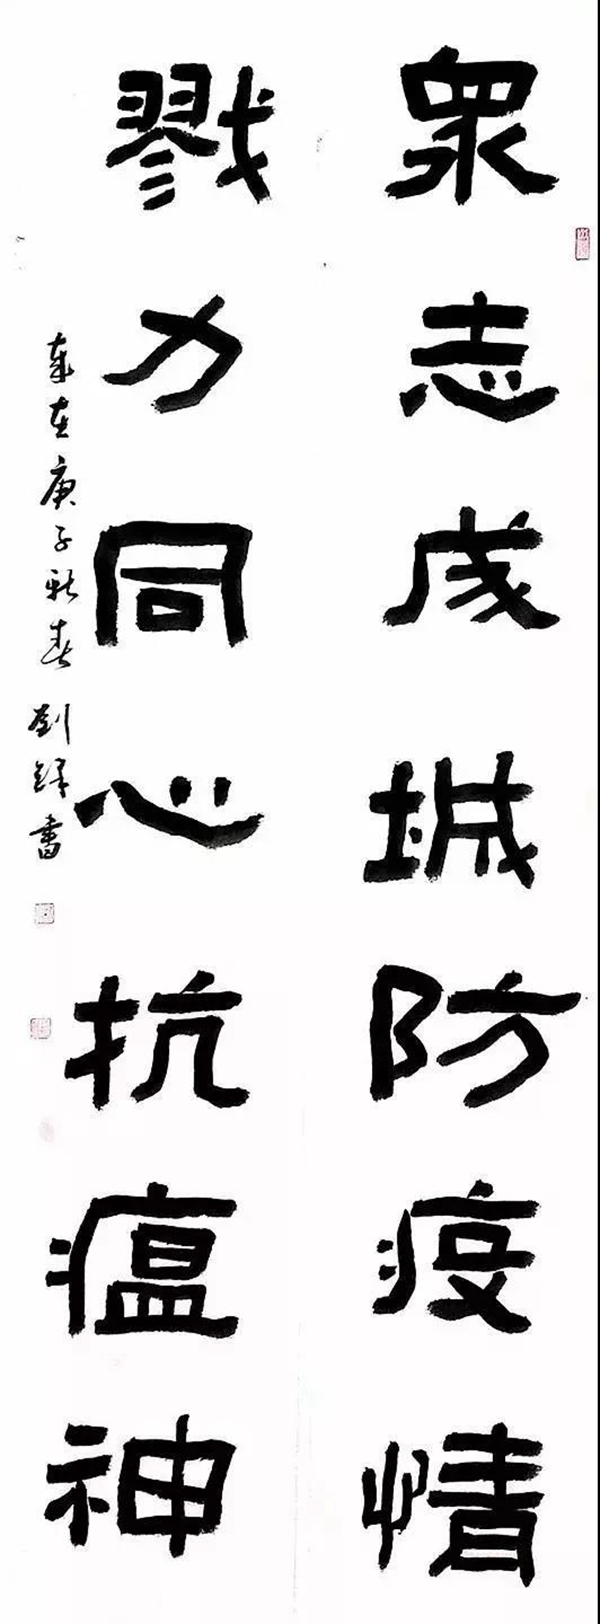 眾志成城防疫情
戮力同心抗瘟神
歲在庚子新春劉鐸書